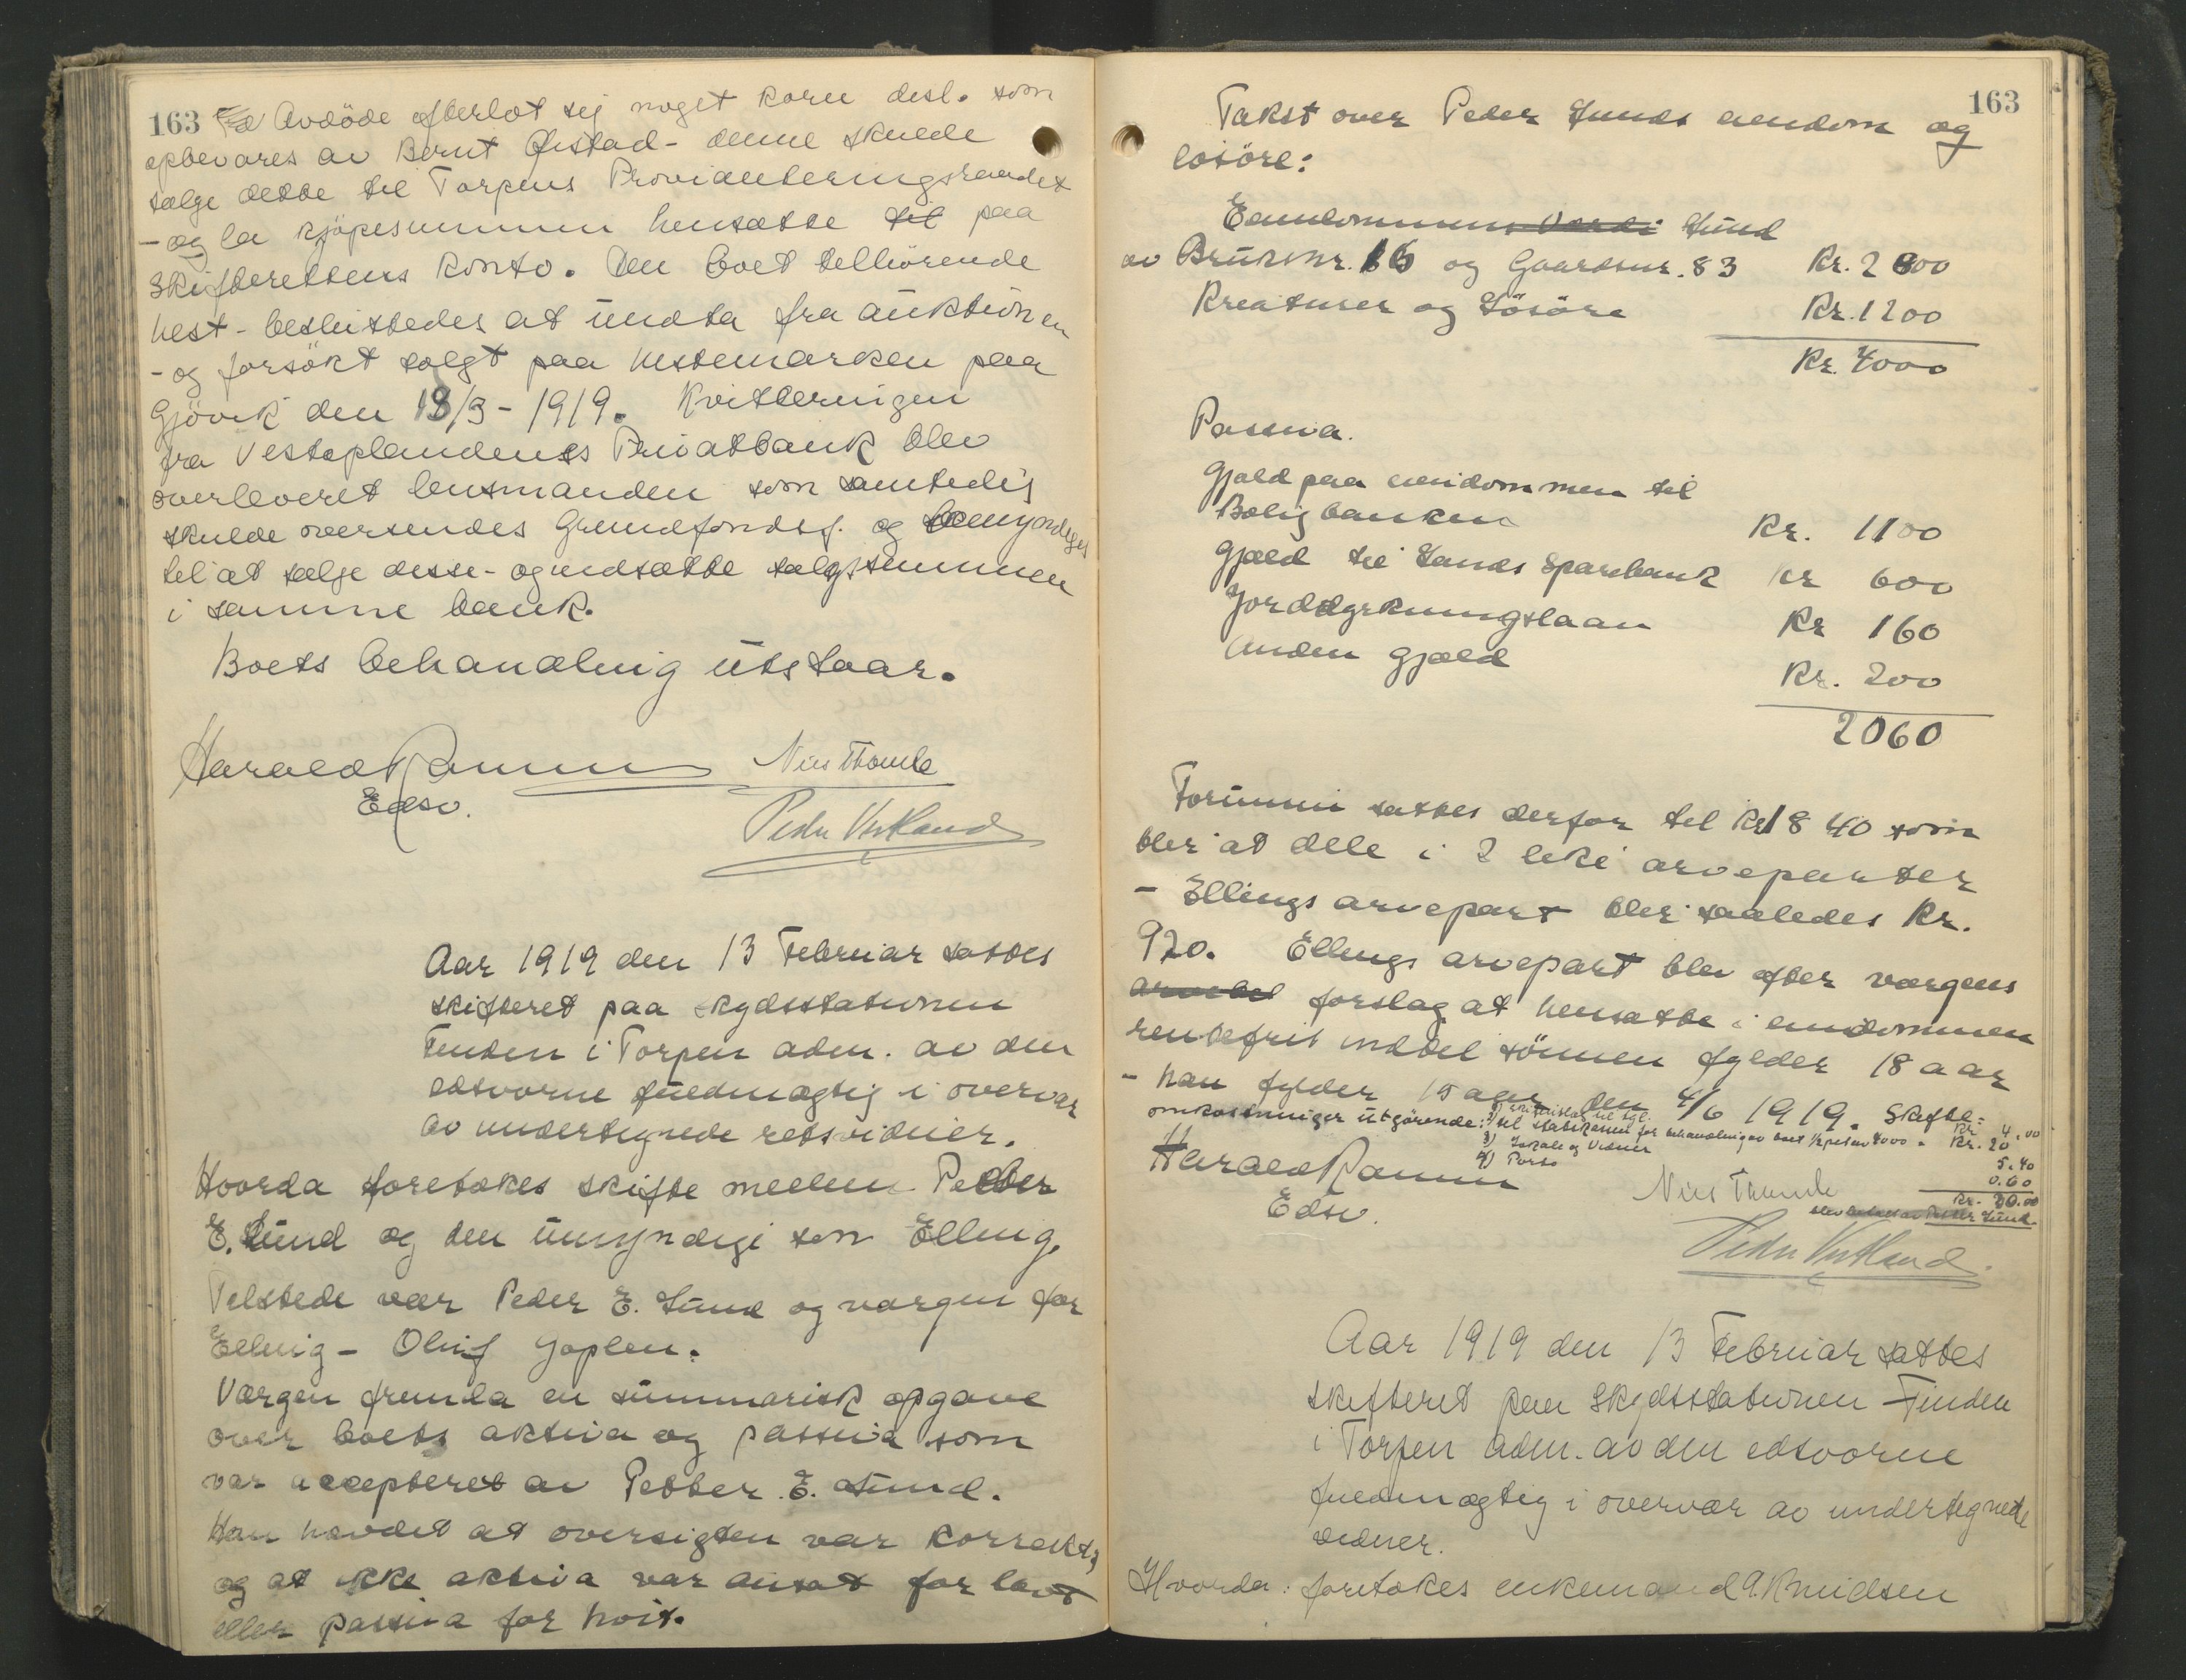 163 Avdöde efterlot sig noget korn desl. som
opbevares av Bernt Øistad - denne skulde
sælge dette til Torpens Provianteringsraadet
- og la kjøpesummen hensætte til paa
skifterettens konto. Den boet tilhørende
hest - besluttedes at undta fra auktionen
- og forsökt solgt paa hestemarken paa
Gjövik den 18/3 - 1919. Kvitteringen
fra Vestoplandenes Privatbank blev
overleveret lensmanden som samtidig
skulde oversendes Grundfondsf. og bemyndiges
til at sælge disse - og indsætte salgssummen
i samme bank.
Boets behandling utstaar.
Harald Nils Thomle
Edsv.
Peder
Aar 1919 den 13 Februar sattes
skifteret paa skydsstationen
Finden i Torpen adm. av den
edsvorne fuldmægtig i overvær
av undertegnede retsvidner.
Hvorda foretokes skifte mellem Petter
E. Lund og den umyndige søn Elling.
Tilstede var Peder E. Lund og værgen for
Elling - Oluf Joplen.
Værgen fremla en summarisk opgave
over boets aktiva og passiva som
var accepteret av Petter E. Lund.
Han hævdet at oversigten var korrekt,
og at ikke aktiva var ansat for lavt
eller passiva for høit.
163
Takst over Peder Lunds eiendom og
løsöre:
Eiendommens Værdi Lund
av Bruksnr. 16 og Gaardsnr. 83 Kr. 2800
Kreaturer og Lösöre Kr. 1200
Kr. 4000
Passiva.
Gjæld paa eiendommen til
Boligbanken Kr. 1100
Gjæld til Lands Sparebank Kr 600
Jorddyrkningslaan Kr 160
Anden gjæld Kr. 200
2060
Formuen sattes derfor til Kr 1840 som
blir at dele i 2 like arveparter
- Ellings arvepart blir saaledes Kr.
920. Ellings arvepart blev efter værgens
forslag at hensætte i eiendommen
rentefrit indtil sönnen fylder 18 aar
- han fylder 15 aar den 4/6 1919. Skifte-
omkostninger utgörende: 1) til sgl. Kr 4.00
2) til statskassen for behandling av boet 1/2 pct av 4000 - Kr. 20
3) Lokale og Vidner 5.40
4) Porto 0.60
Kr. 30.00
blev betalt av Petter Lund.
Harald Nils Thomle
Edsv.
Peder
Aar 1919 den 13 Februar sattes
skifteret paa Skydsstationen Finden
i Torpen adm. av den edsvorne
fuldmægtig i overvær av undertegnede
vidner.
Hvorda: foretokes enkemand A. Knudsen